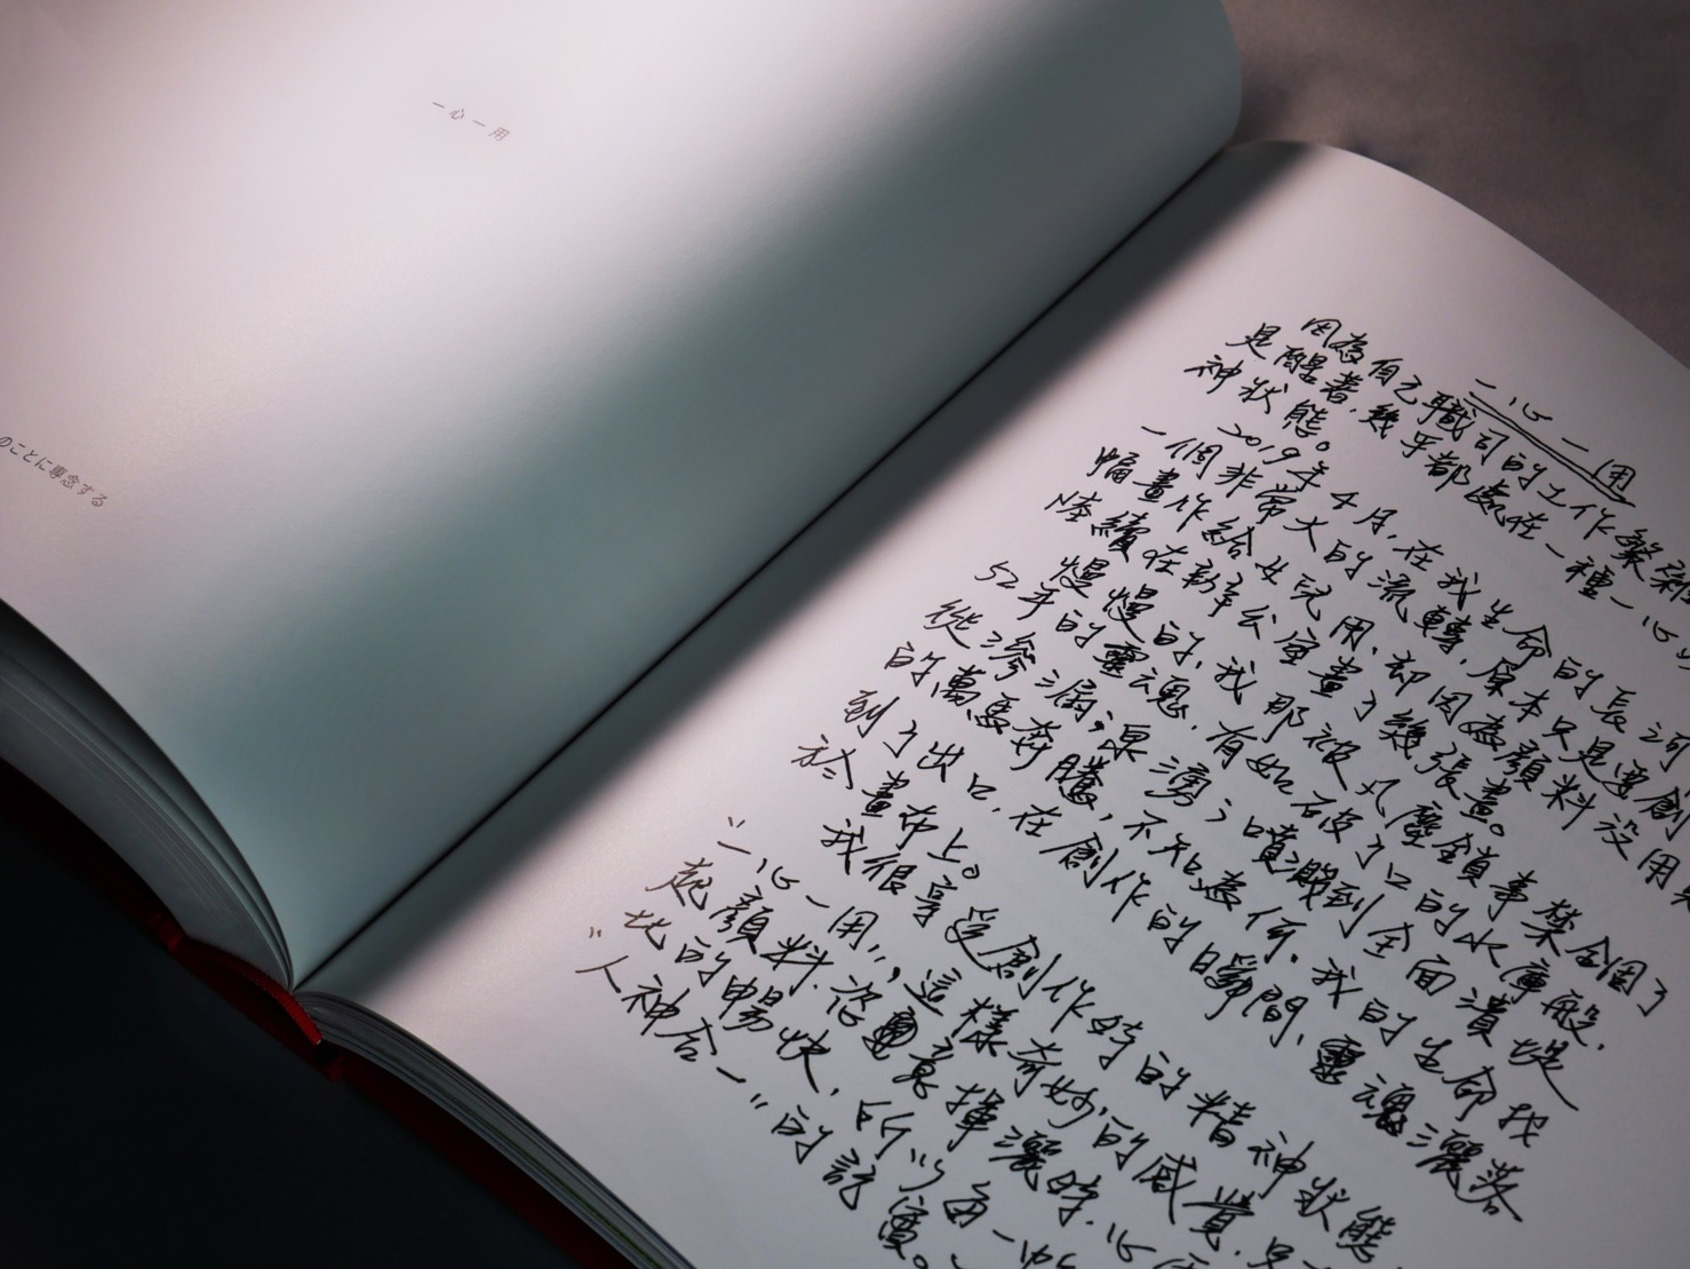 一心一用
のことに専念する
一心一用
因為自己職司的工作繁雜
是醒著,幾乎都處在一種一心
神狀態。
2019年4月,在我生命的長河,
一個非常大的流轉,原本只是要創
幅畫作給女兒用,卻因為顏料沒用
陸續在新辛公室畫了幾張畫。
慢慢的,我那被凡塵鎖事禁錮了
52年的靈魂,有如破了口的水庫般,
從滲漏;泉湧;噴濺到全面潰堤
的萬馬奔騰,不知為何,我的生命找
到了出口,在創作的瞬間,靈魂灑落
於畫布上。
我很享受創作時的精神狀態
"一心一用",這樣奇妙的感覺,
起顏料,恣意揮灑時,心
此的暢快,所以每一
"人神合一"的記